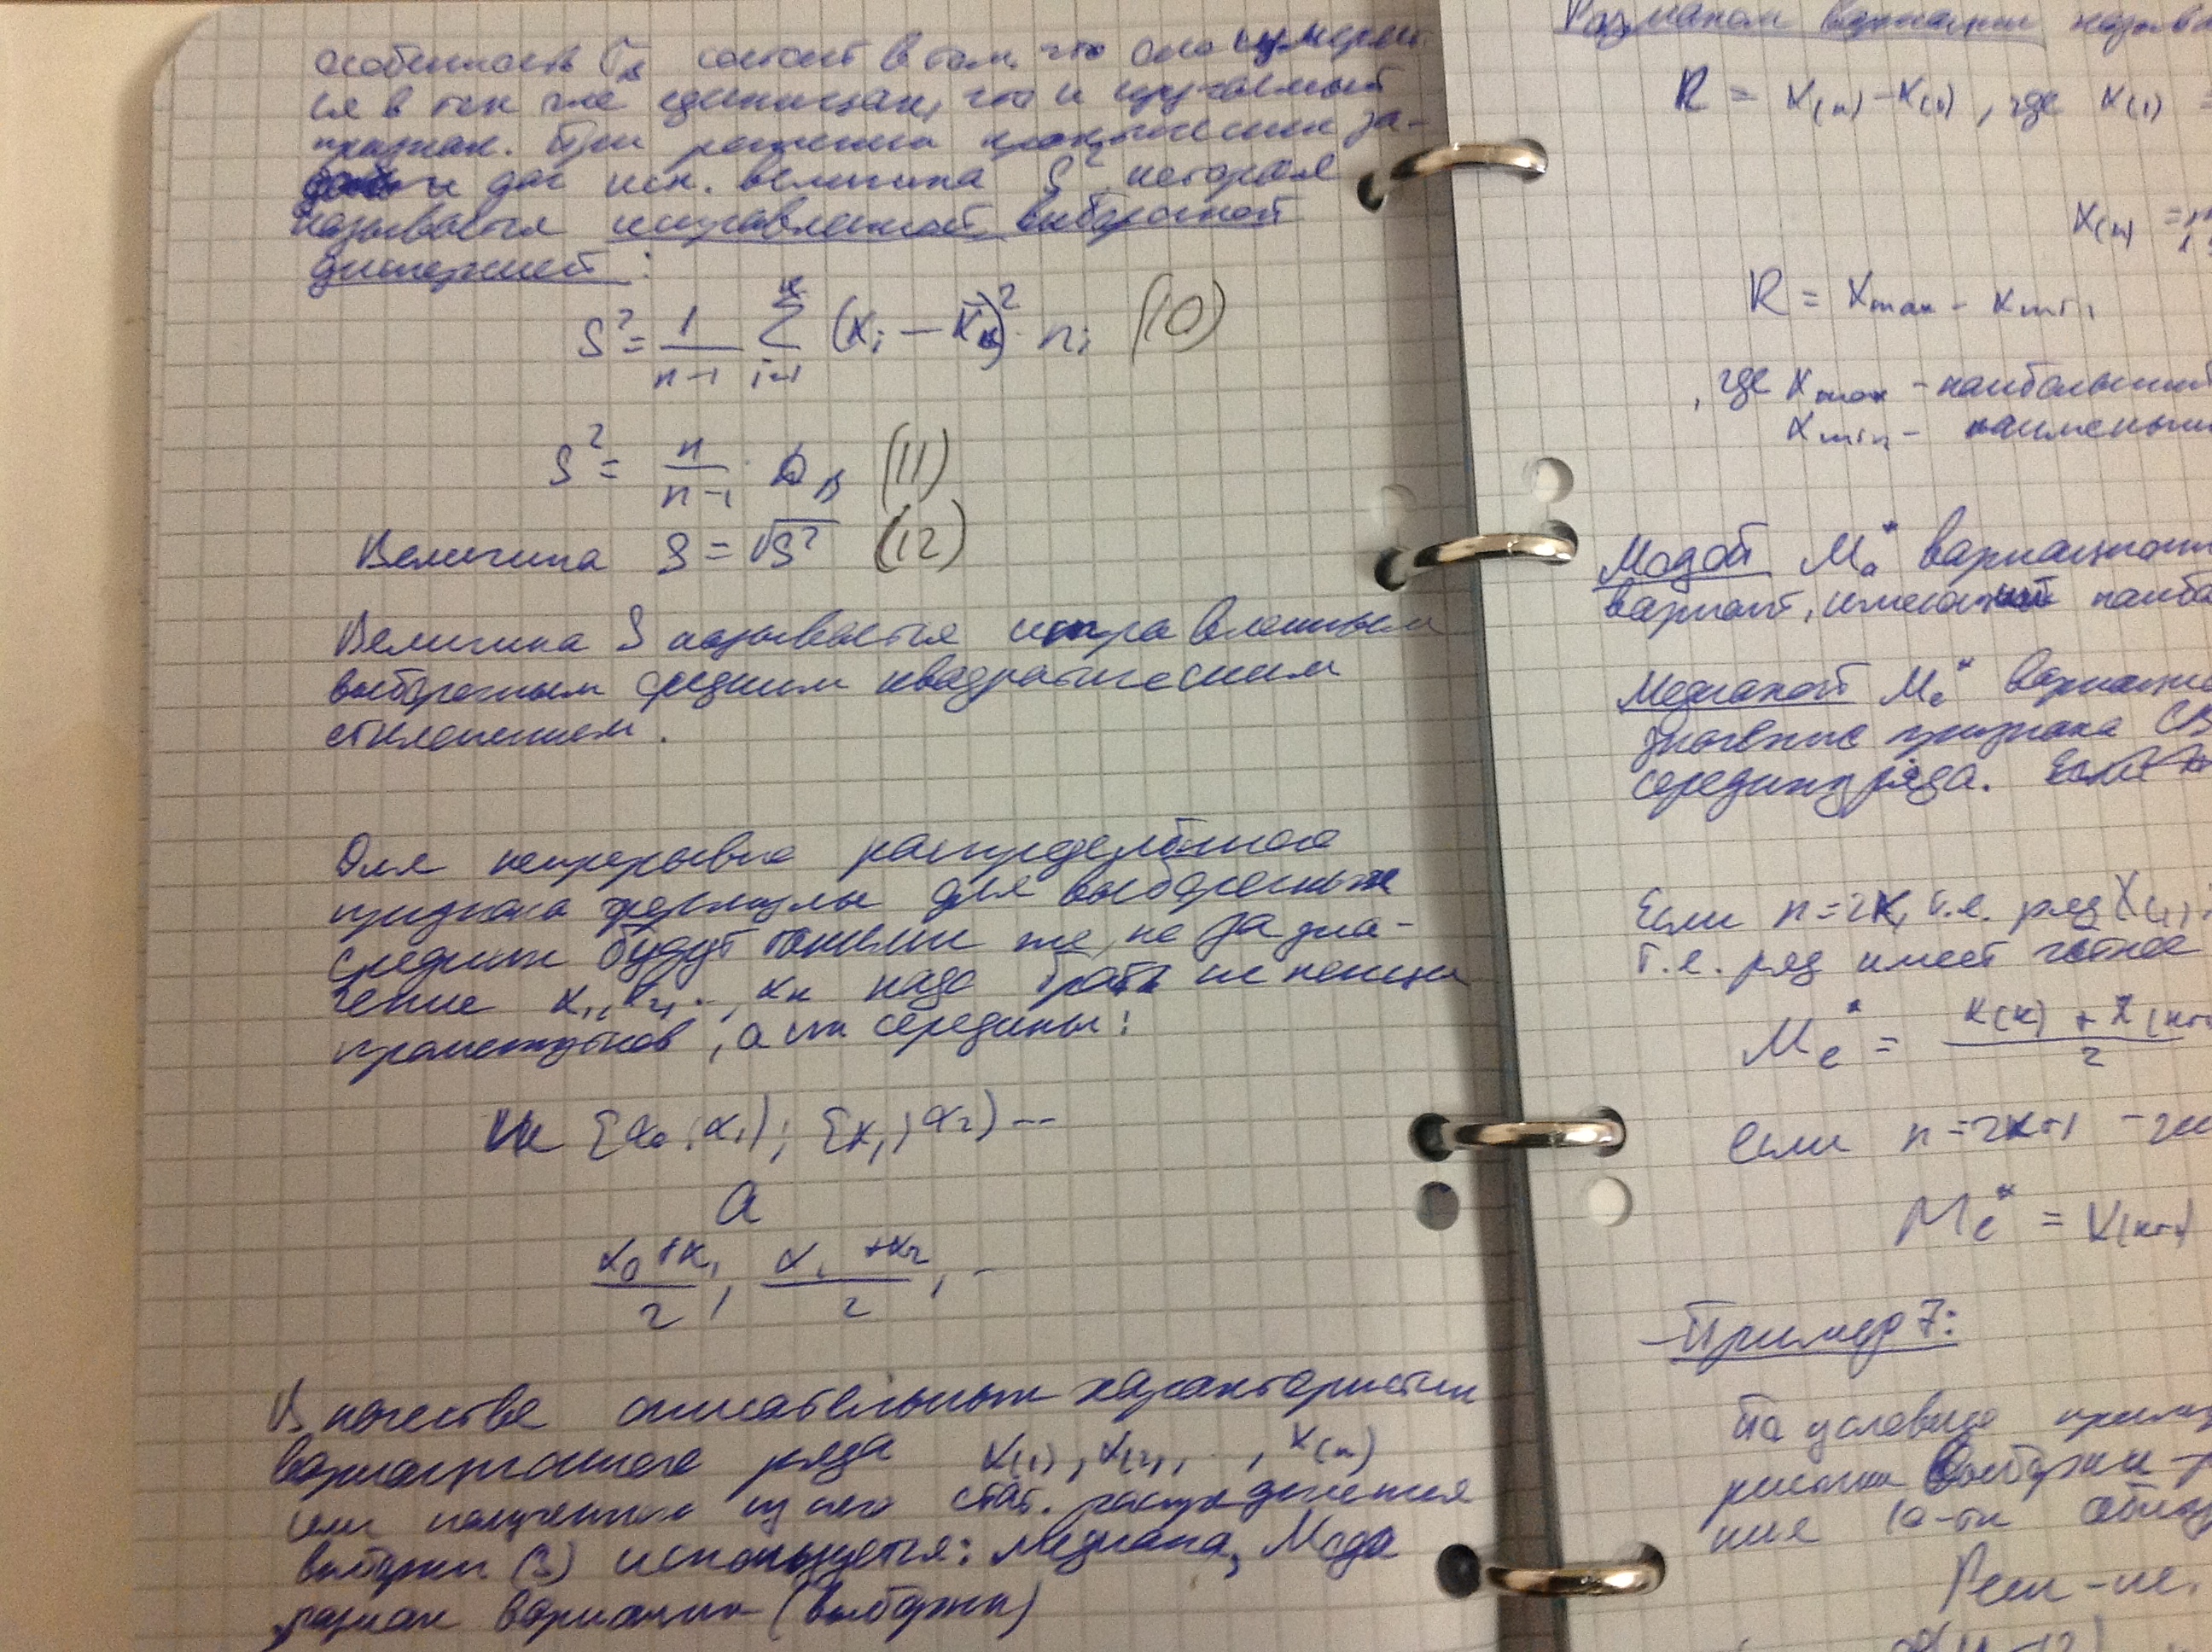 особенность σв состоит в том, что она измеряет-
ся в тех же единицах, что и изучаемый
признак. При решении практических за-
дач исп. величина S², которая
называется исправленной выборочной
дисперсией:
S² = 1/(n-1) Σ_{i=1}^{k} (xᵢ - x̄в)² · nᵢ (10)
S² = n/(n-1) · Dв (11)
Величина S = √S² (12)
Величина S называется исправленным
выборочным средним квадратическим
отклонением.
Для непрерывно распределённого
признака формулы для выборочных
средних будут такими же, но за зна-
чение x₁, x₂, .., xₙ надо брать не концы
промежутков, а их середины:
Не [x₀; x₁); [x₁; x₂) ...
а
(x₀ + x₁)/2, (x₁ + x₂)/2, ..
В качестве описательных характеристик
вариационного ряда x(1), x(2), .., x(n)
или полученного из него стат. распределения
выборки (3) используется: Медиана, Мода
размах вариации (выборки)
Размахом вариации назыв
R = x(n) - x(1), где x(1) =
x(n) =
R = xmax - xmin
, где xmax - наибольший
xmin - наименьший
Модой Mo* вариационн
вариант, имеющий наибо
Медианой Me* вариацио
значение признака (СВ
середину ряда.
Если n = 2k, т.е. ряд x(1),
т.е. ряд имеет чётное
Me* = (x(k) + x(k+1)/2
если n = 2k+1 -
Me* = x(k+1)
Пример 7:
По условию
выборки -
ние 10-ти абид
Реш-ие.